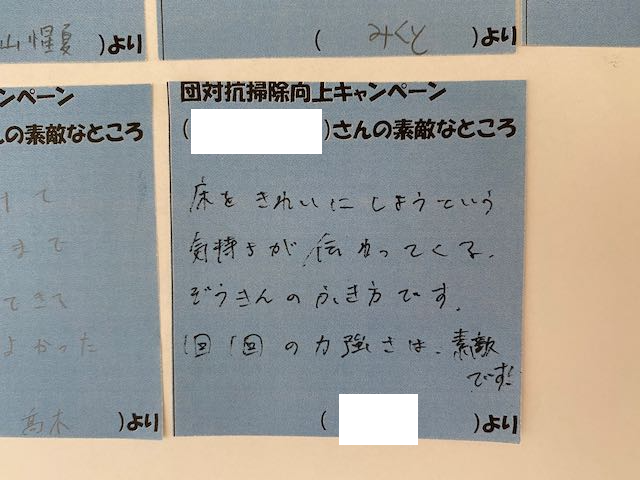 山惺夏 )より
( みくと )より
ンペーン
んの素敵なところ
けて
まで
できて
よかった
高木 )より
団対抗掃除向上キャンペーン
( )さんの素敵なところ
床をきれいにしようという
気持ちが伝わってくる、
ぞうきんのふき方です。
1回1回の力強さは、素敵
です!
( )より